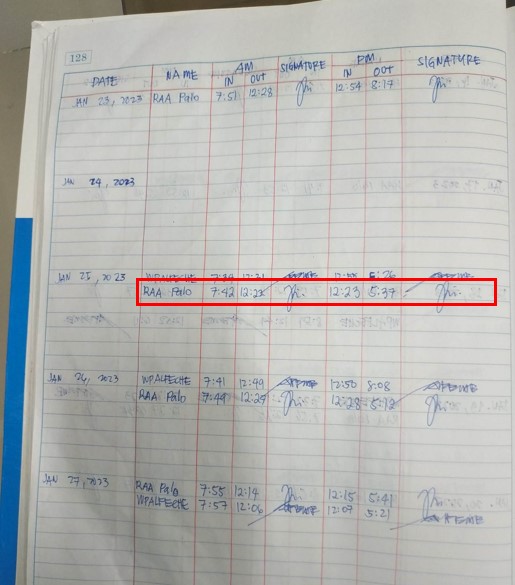 128
DATE NAME AM IN OUT SIGNATURE PM IN OUT SIGNATURE
JAN 23, 2023 RAA Palo 7:51 12:28 12:54 8:17
JAN 24, 2023
JAN 25, 2023 WPALFECHE 12:21 5:26
RAA Palo 7:42 12:22 12:23 5:37
JAN 26, 2023 WPALFECHE 7:41 12:49 12:50 8:08
RAA Palo 7:49 12:27 12:28 5:12
JAN 27, 2023 RAA Palo 7:55 12:14 12:15 5:41
WPALFECHE 7:57 12:06 12:07 5:21